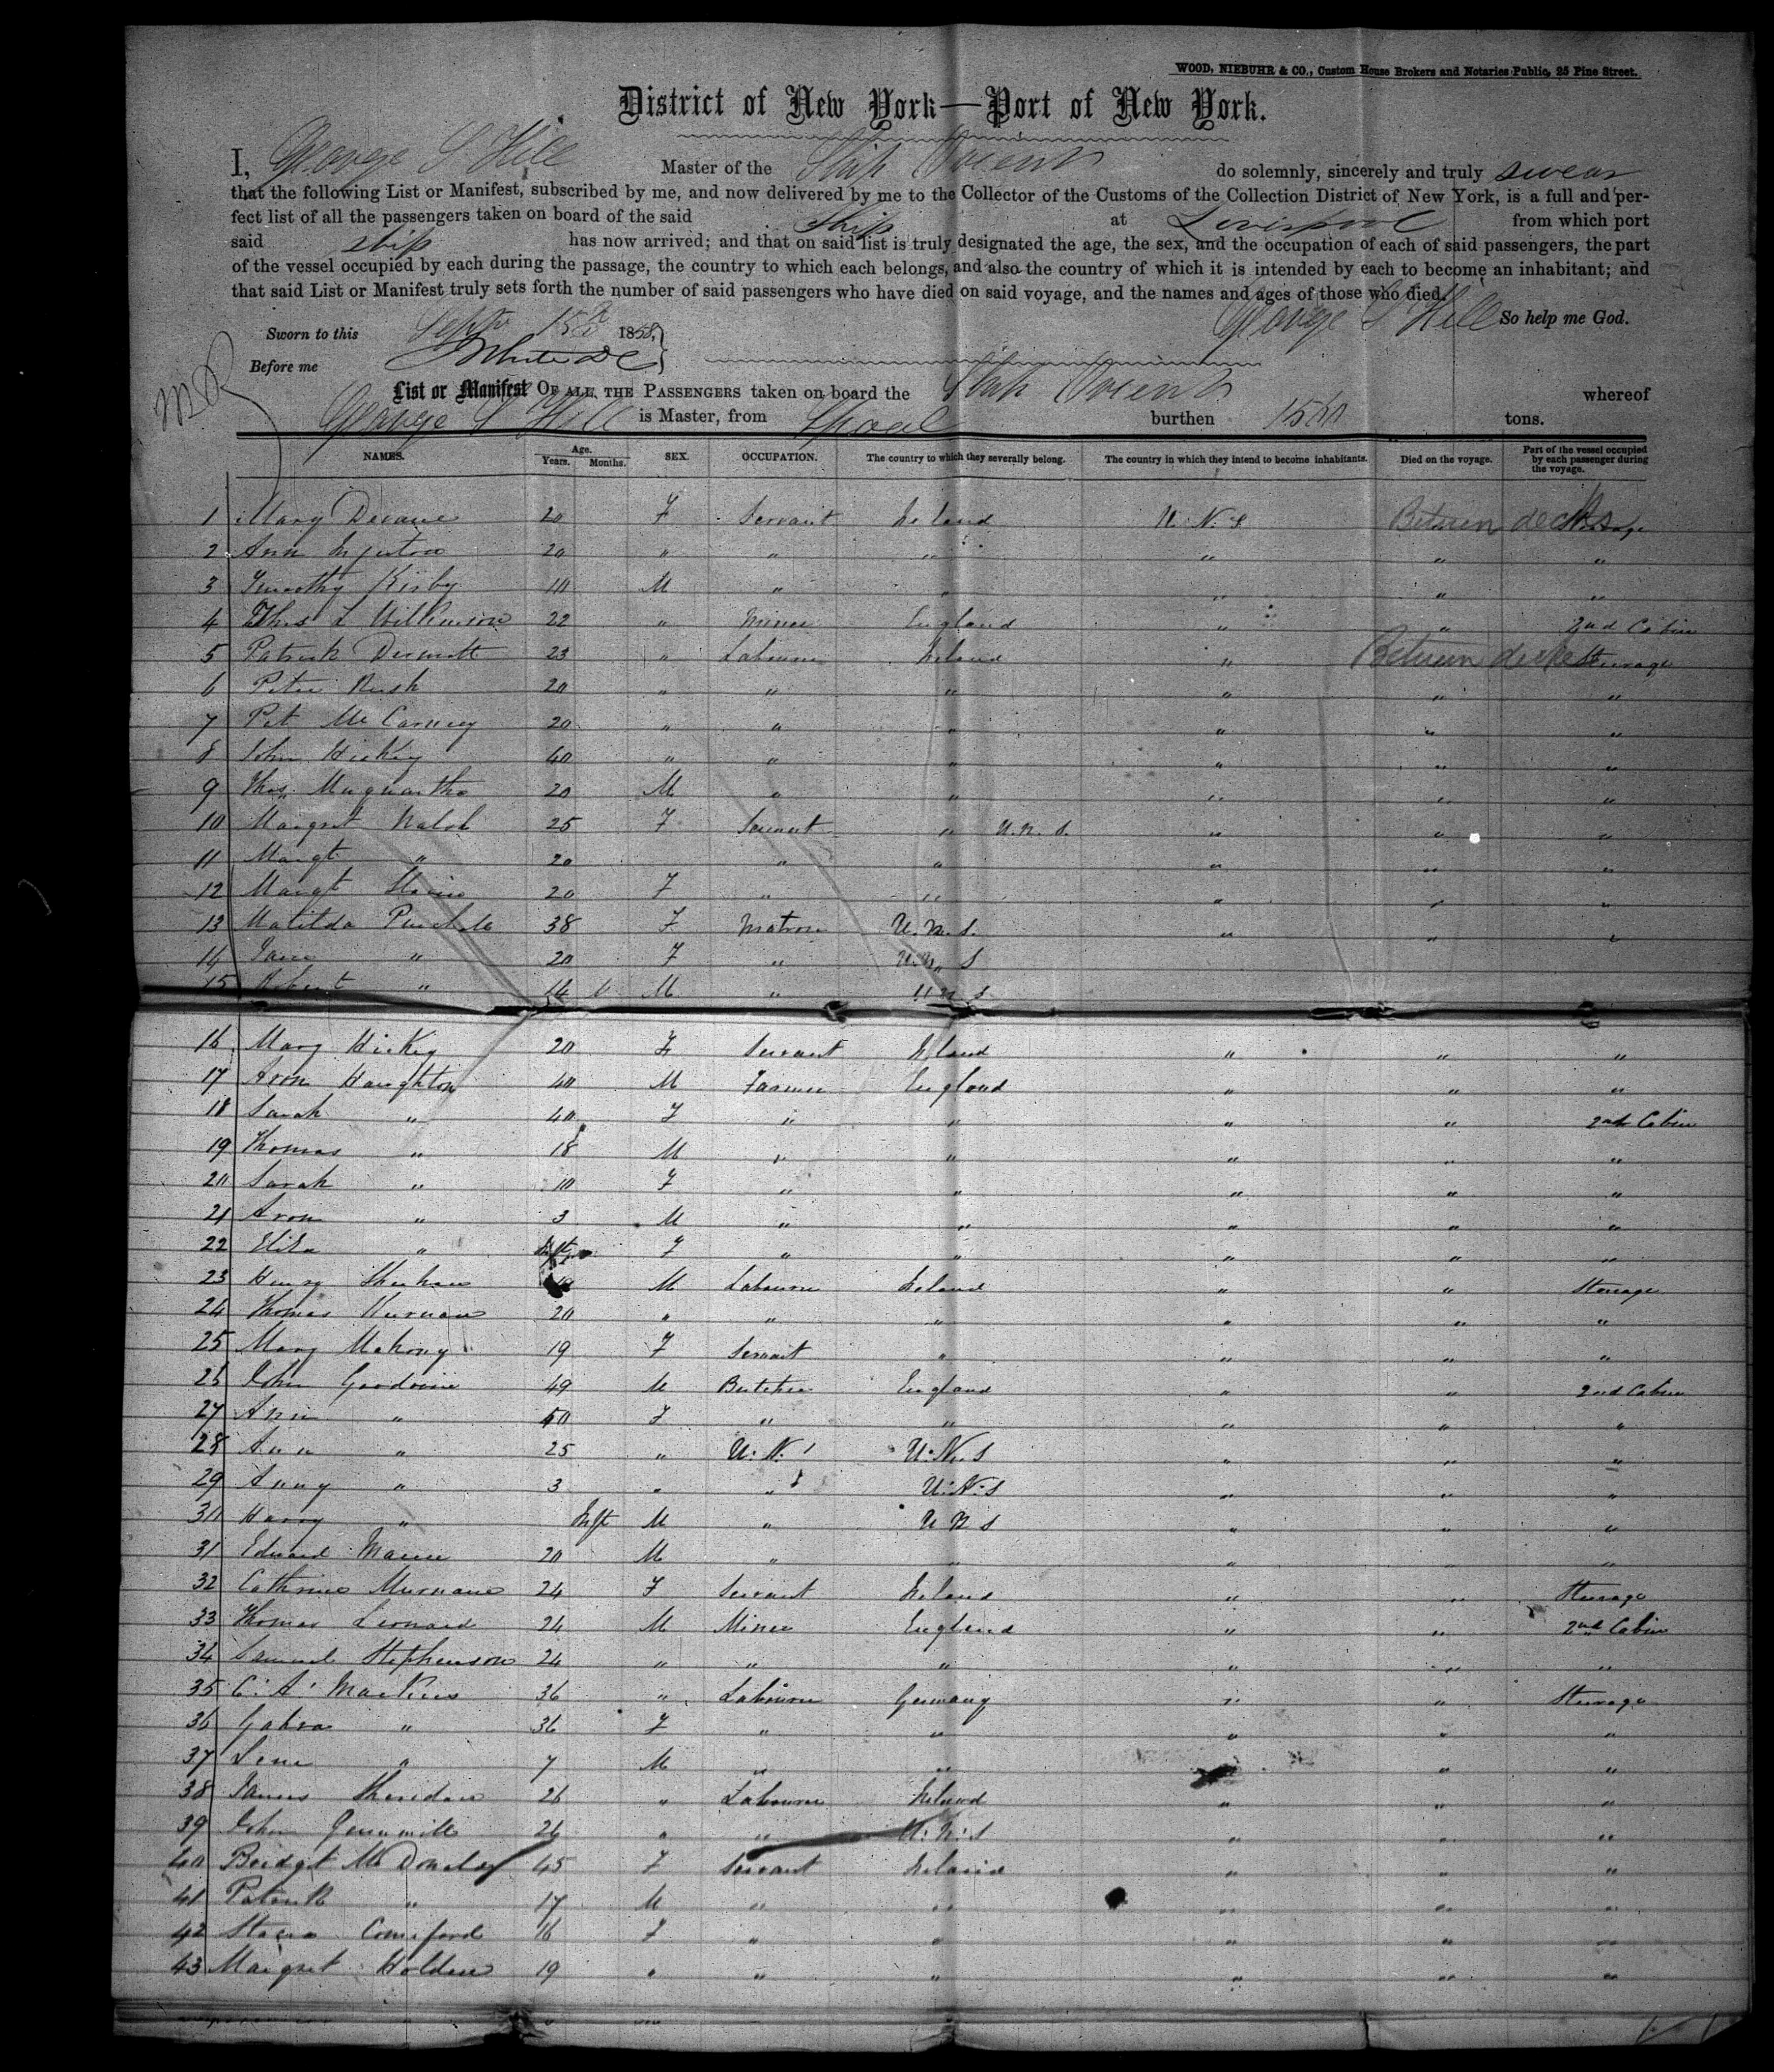 WOOD, NIEBUHR & CO., Custom House Brokers and Notaries Public, 25 Pine Street.
District of New York—Port of New York.
I, George S Hill Master of the Ship Orient do solemnly, sincerely and truly swear
that the following List or Manifest, subscribed by me, and now delivered by me to the Collector of the Customs of the Collection District of New York, is a full and per-
fect list of all the passengers taken on board of the said Ship at Liverpool from which port
said ship has now arrived; and that on said list is truly designated the age, the sex, and the occupation of each of said passengers, the part
of the vessel occupied by each during the passage, the country to which each belongs, and also the country of which it is intended by each to become an inhabitant; and
that said List or Manifest truly sets forth the number of said passengers who have died on said voyage, and the names and ages of those who died.
Sworn to this Sept 15th 1858, George S Hill So help me God.
Before me
List or Manifest OF ALL THE PASSENGERS taken on board the Ship Orient whereof
George S Hill is Master, from Lpool burthen 1560 tons.
NAMES. Age. Years. Months. SEX. OCCUPATION. The country to which they severally belong. The country in which they intend to become inhabitants. Died on the voyage. Part of the vessel occupied by each passenger during the voyage.
1 Mary Devane 20 F Servant Ireland U.N.S Between decks
2 Ann 20 " " " " " "
3 Timothy Kirby 10 M " " " " "
4 Thos L Wilkinson 22 " Miner England " " 2nd Cabin
5 Patrick Dermott 23 " Labourer Ireland " Between decks Steerage
6 Peter Rush 20 " " " " " "
7 Pat Mc Carney 20 " " " " " "
8 John Hickey 40 " " " " " "
9 Thos 20 M " " " " "
10 Margret Walsh 25 F Servant " U.N.S. " " "
11 Margt " 20 " " " " "
12 Margt 20 F " " " " "
13 Matilda 38 F Matron U.N.S. " " "
14 Jane " 20 F " U.N. S
15 Robert " 14 M " U N S
16 Mary Hickey 20 F Servant Ireland " " "
17 Aron Haughton 40 M Farmer England " " "
18 Sarah " 40 F " " " " 2nd Cabin
19 Thomas " 18 M " " " " "
20 Sarah " 10 F " " " " "
21 Aron " 3 M " " " " "
22 Eliza " Inft F " " " " "
23 Henry Sheehan M Labourer Ireland " " Steerage
24 Thomas Murnane 20 " " " " " "
25 Mary Mahony 19 F Servant " " " "
26 John Goodwin 49 M Butcher England " " 2nd Cabin
27 Ann " 50 F " " " " "
28 Ann " 25 " U.N. U.N.S " " "
29 Anny " 3 " " U.N.S " " "
30 Harry " Inft M " U N S " " "
31 Edward 20 M " " " " "
32 Cathrine Murnane 24 F Servant Ireland " " Steerage
33 Thomas Leonard 24 M Miner England " " 2nd Cabin
34 Samuel Stephenson 24 " " " " " "
35 C. A. Markins 36 " Labourer Germany " " Steerage
36 " 36 F " " " " "
37 Lene " 7 M " " " " "
38 James Sheridan 26 " Labourer Ireland " " "
39 John 26 " " U.N.S " " "
40 Bridgt Mc 45 F Servant Ireland " " "
41 Patrick " 17 M " " " " "
42 Comeford 16 F " " " " "
43 Margret Holden 19 " " " " " "